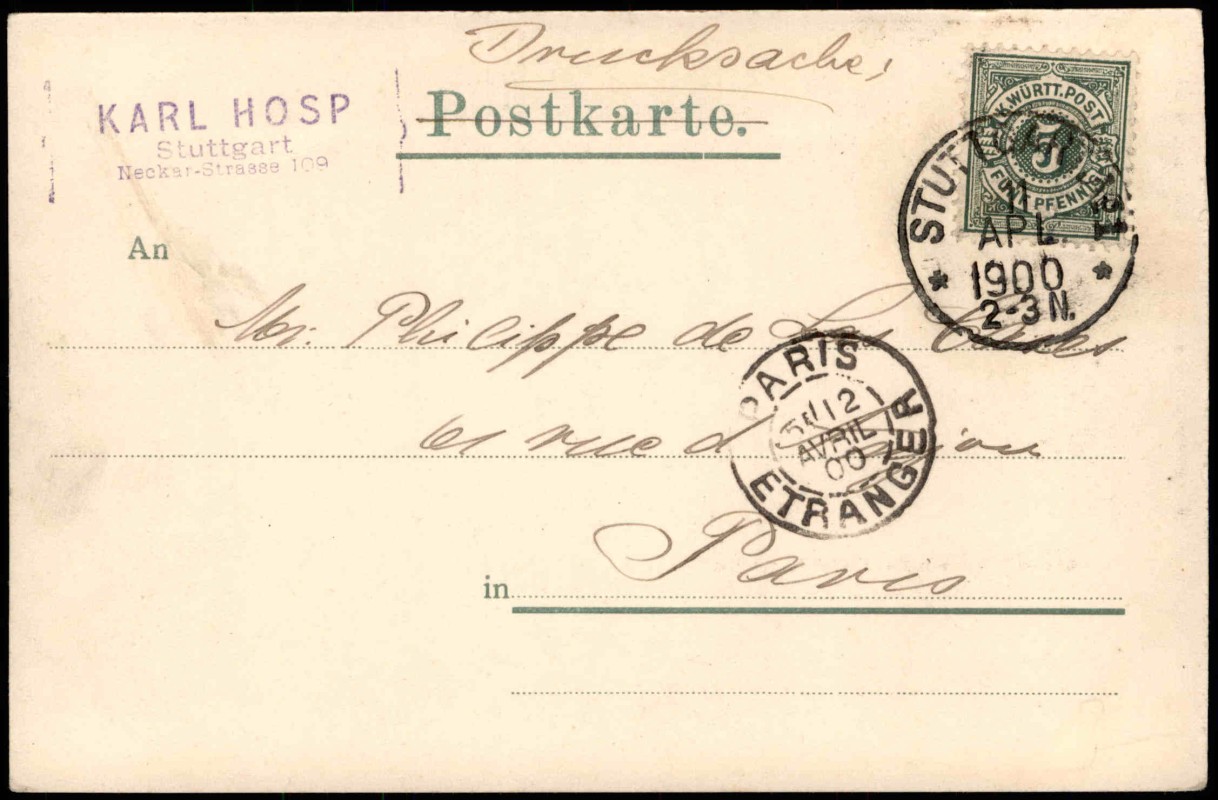 Drucksache!
KARL HOSP
Stuttgart
Neckar-Strasse 109
Postkarte.
K. WÜRTT. POST
5
FÜNF PFENNIG
STUTTGART
11
APL.
1900
2-3 N.
An
Mr. Philippe de Las Cases
61 rue d'
PARIS
12
AVRIL
00
ETRANGER
in Paris